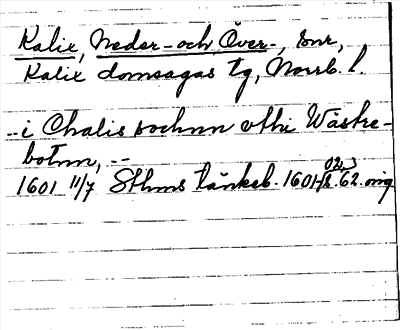 Kalix, Neder- och Över-, snr,
Kalix domsagas tg, Norrb. l.
-- i Chalis sochnn vthi Wästre-
botnn, --
1601 11/7 Sthms tänkeb. 1601-02 s. 62. orig